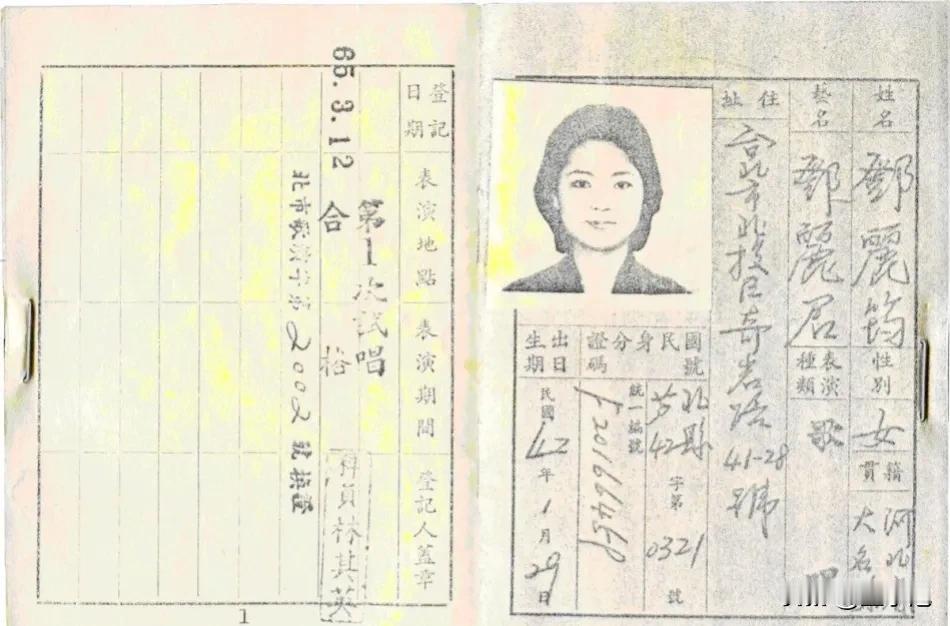 姓名 鄧麗筠 性別 女 籍貫 河北大名
藝名 鄧麗君 表演種類 歌
住址 台北市北投区奇岩路41-28號
國民身分證號碼 北縣 42字第0321號
統一編號
出生日期 民國42年1月29日
登記日期 表演地點 表演期間 登記人蓋章
65.3.12
第1次試唱
合格
員林其英
北市 字第2002號換證
1